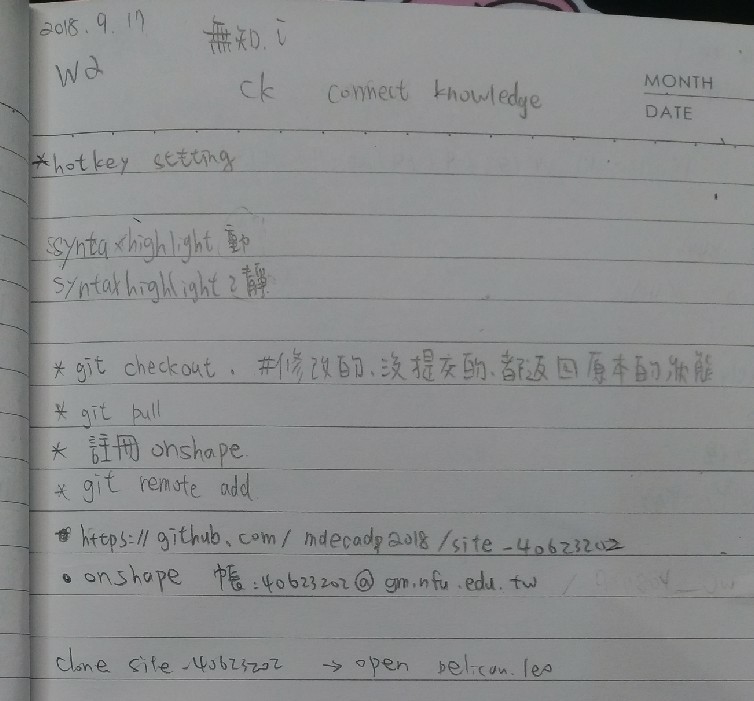 2018.9.17
無知.i
W2
ck connect knowledge
MONTH
DATE
*hotkey setting
syntaxhighlight 動
syntaxhighlight2靜
* git checkout . #修改的、沒提交的、都返回原本的狀態
* git pull
* 註冊 onshape.
* git remote add
https://github.com/mdecadp2018/site-40623202
• onshape 帳:40623202@gm.nfu.edu.tw
clone site-40623202 → open pelican.leo